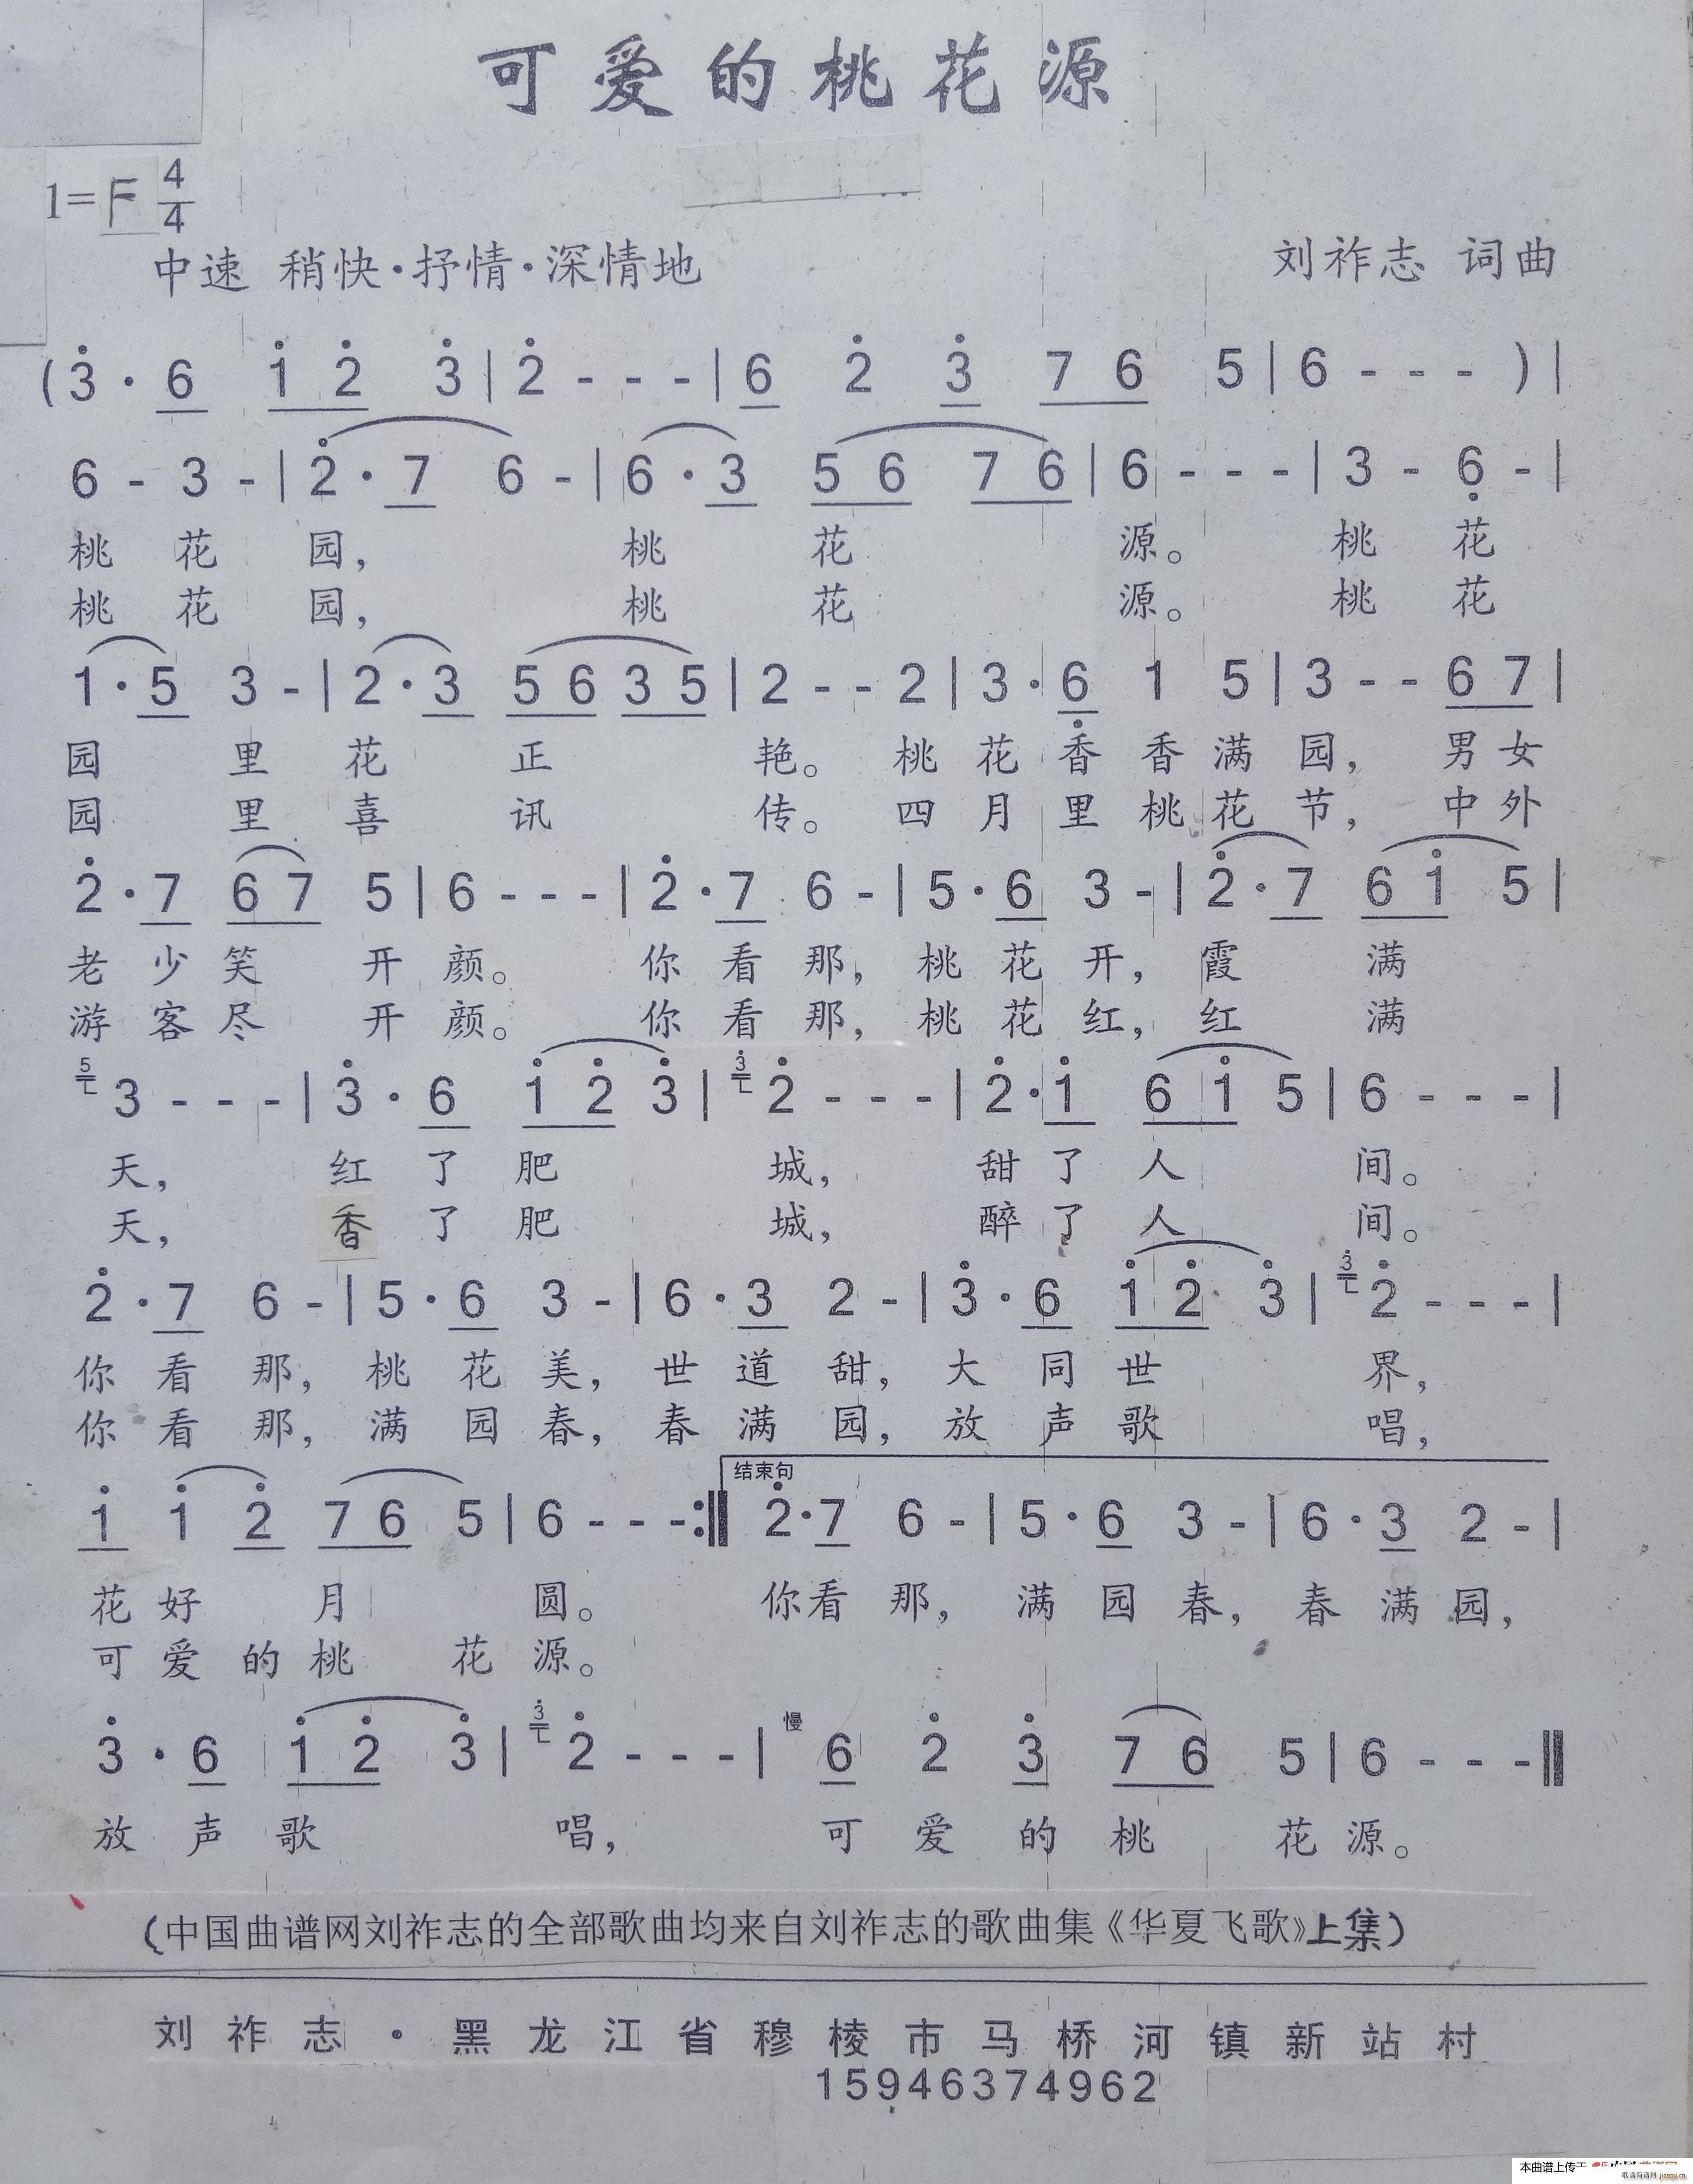 可爱的桃花源
1=F 4/4
中速 稍快·抒情·深情地
刘祚志 词曲
(3̇·6 1̇ 2̇ 3̇|2̇ - - -|6 2̇ 3̇ 7 6 5|6 - - - )|
6 - 3 -|2̇·7 6 -|6·3 5 6 7 6|6 - - -|3 - 6̣ -|
桃 花 园, 桃 花 源。 桃 花
桃 花 园, 桃 花 源。 桃 花
1·5 3 -|2·3 5 6 3 5|2 - - 2|3·6̣ 1 5|3 - - 6 7|
园 里 花 正 艳。 桃 花 香 香 满 园, 男 女
园 里 喜 讯 传。 四 月 里 桃 花 节, 中 外
2̇·7 6 7 5|6 - - -|2̇·7 6 -|5·6 3 -|2̇·7 6 1̇ 5|
老 少 笑 开 颜。 你 看 那, 桃 花 开, 霞 满
游 客 尽 开 颜。 你 看 那, 桃 花 红, 红 满
5 3 - - -|3̇·6 1̇ 2̇ 3̇|3̇ 2̇ - - -|2̇·1̇ 6 1̇ 5|6 - - -|
天, 红 了 肥 城, 甜 了 人 间。
天, 香 了 肥 城, 醉 了 人 间。
2̇·7 6 -|5·6 3 -|6·3 2 -|3̇·6 1̇ 2̇ 3̇|3̇ 2̇ - - -|
你 看 那, 桃 花 美, 世 道 甜, 大 同 世 界,
你 看 那, 满 园 春, 春 满 园, 放 声 歌 唱,
结束句
1̇ 1̇ 2̇ 7 6 5|6 - - -:‖2̇·7 6 -|5·6 3 -|6·3 2 -|
花 好 月 圆。 你 看 那, 满 园 春, 春 满 园,
可 爱 的 桃 花 源。
慢
3̇·6 1̇ 2̇ 3̇|3̇ 2̇ - - -|6 2̇ 3̇ 7 6 5|6 - - -‖
放 声 歌 唱, 可 爱 的 桃 花 源。
(中国曲谱网刘祚志的全部歌曲均来自刘祚志的歌曲集《华夏飞歌》上集)
刘祚志·黑龙江省穆棱市马桥河镇新站村
15946374962
本曲谱上传于
歌谱简谱网 jianpu.cn